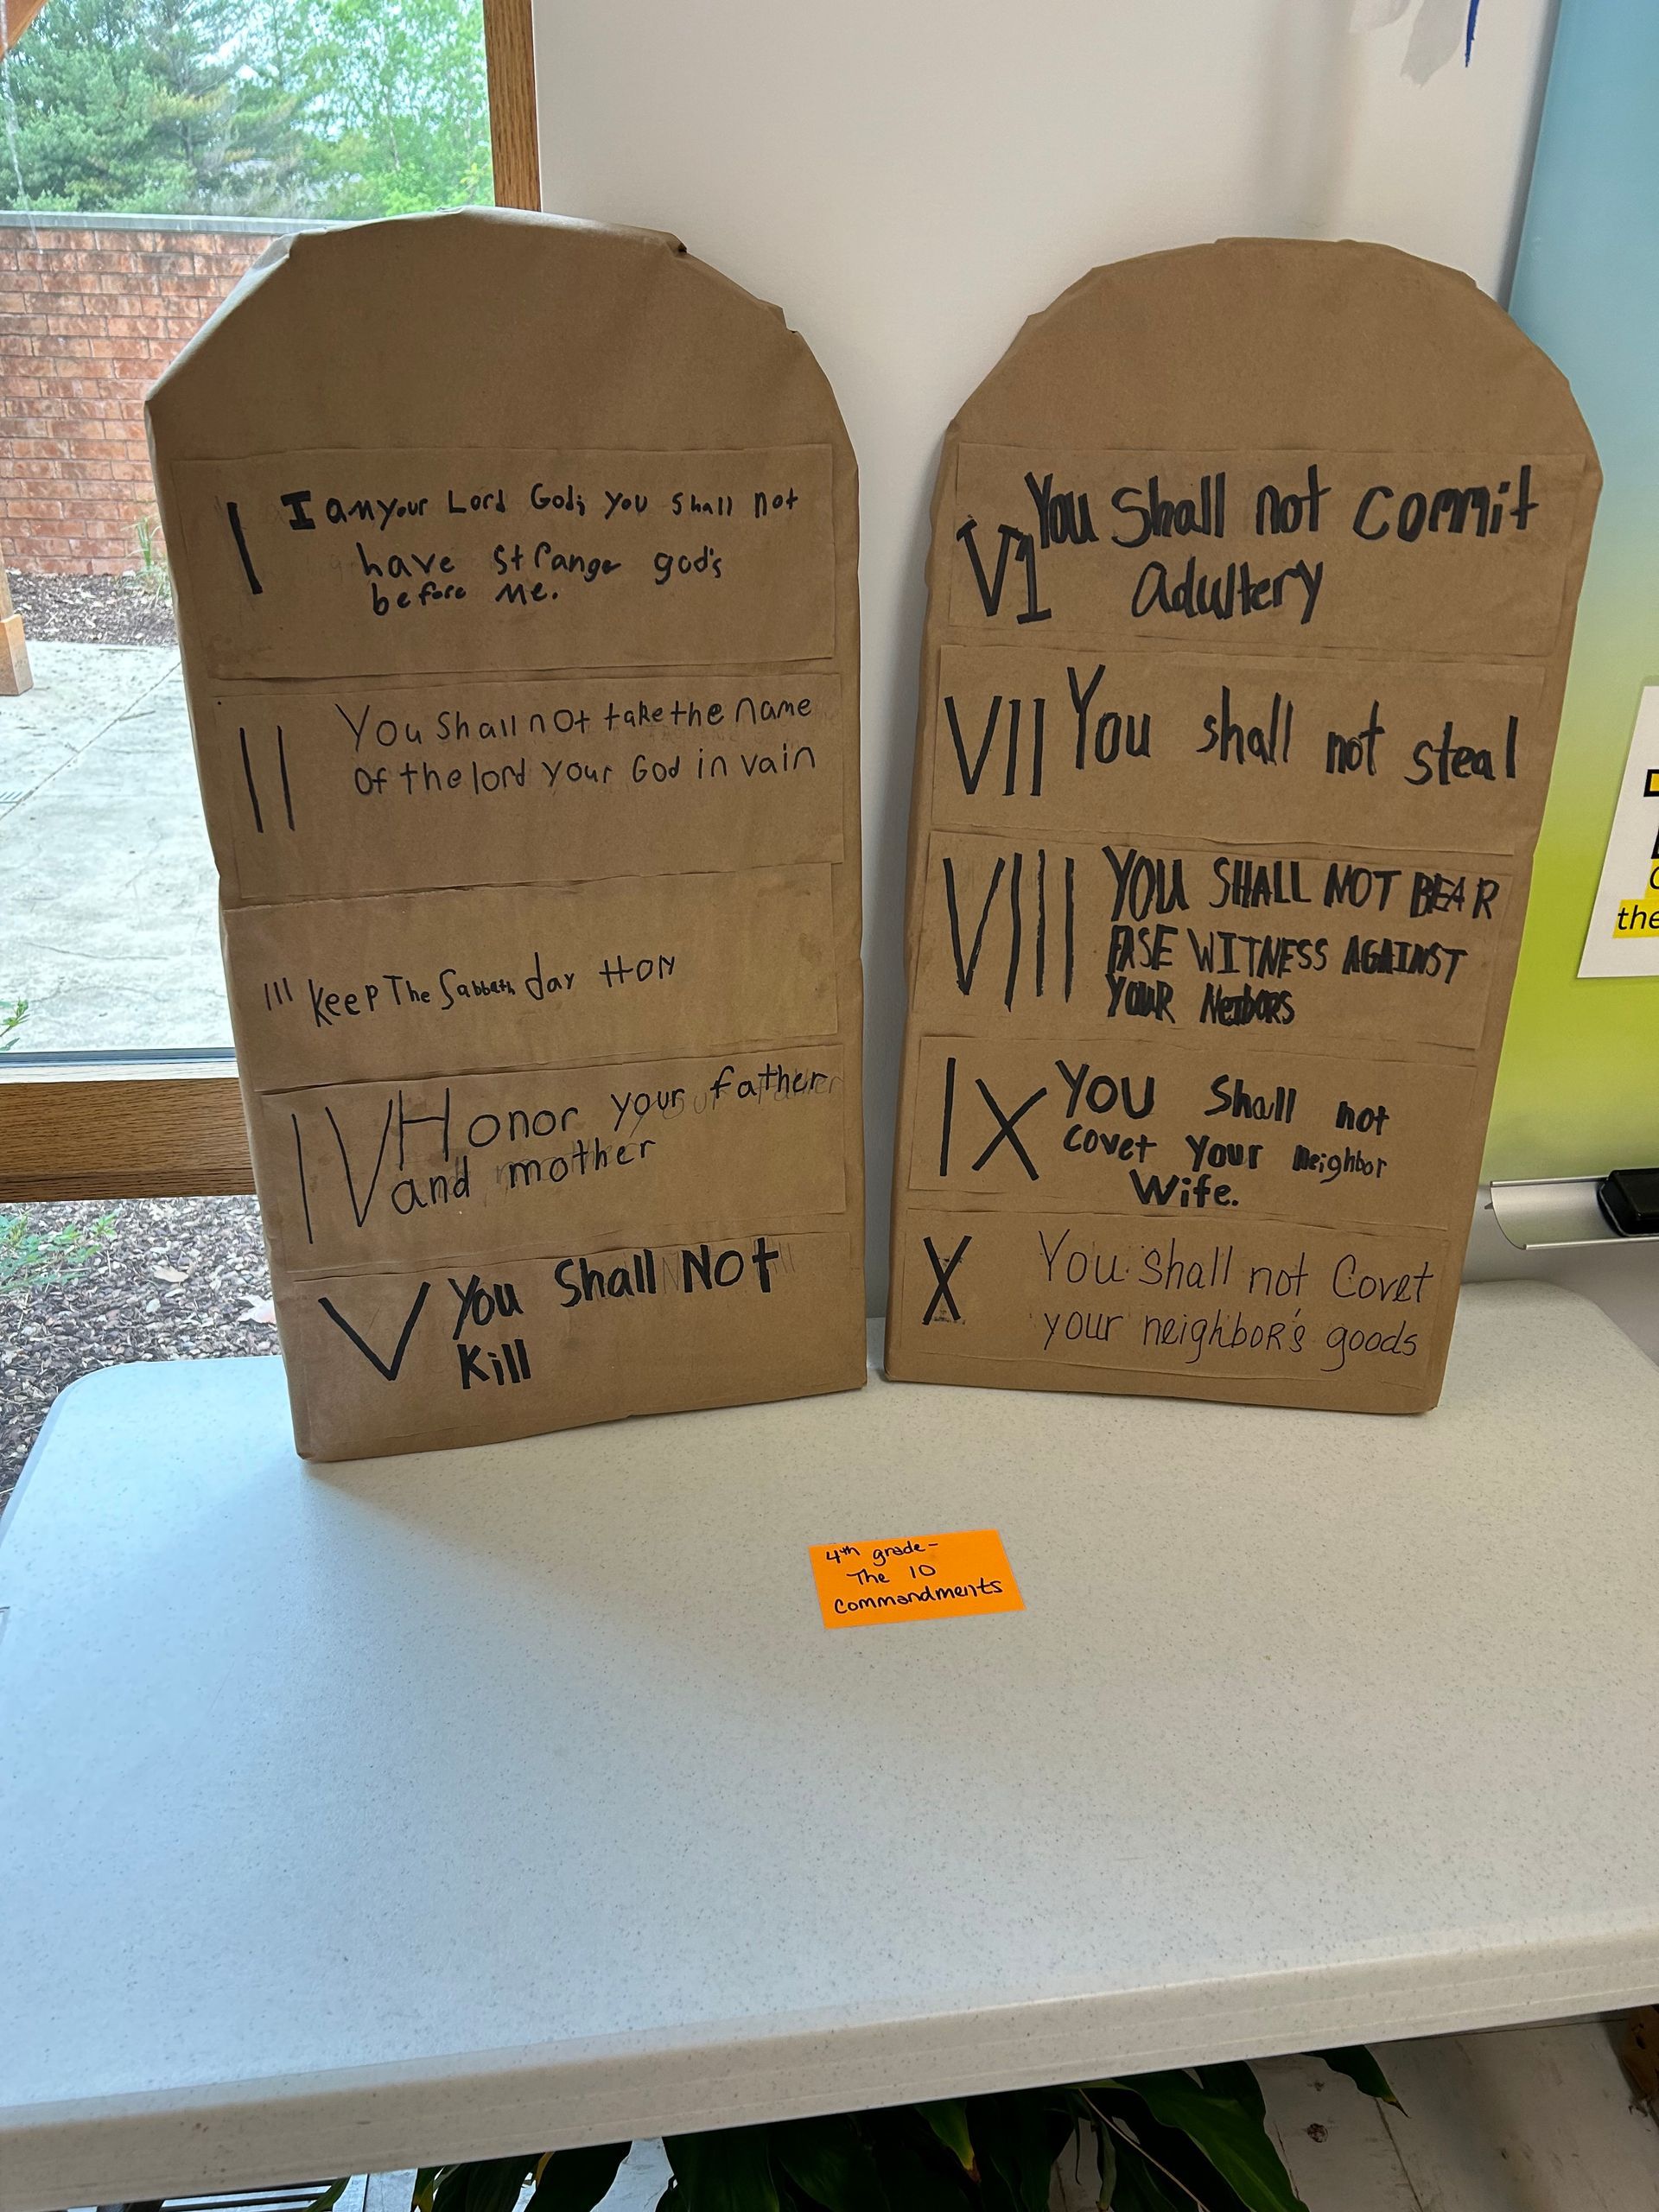 I I am your Lord God; you shall not
have strange god's
before me.
II You shall not take the name
of the lord your God in vain
III Keep The Sabbath day HOlY
IV Honor your father
and mother
V You Shall Not
Kill
VI You Shall not commit
adultery
VII You shall not steal
VIII YOU SHALL NOT BEAR
FASE WITNESS AGAINST
YOUR NeIbORS
IX YOU Shall not
covet your neighbor
Wife.
X You shall not Covet
your neighboR's goods
4th grade-
The 10
Commandments
the